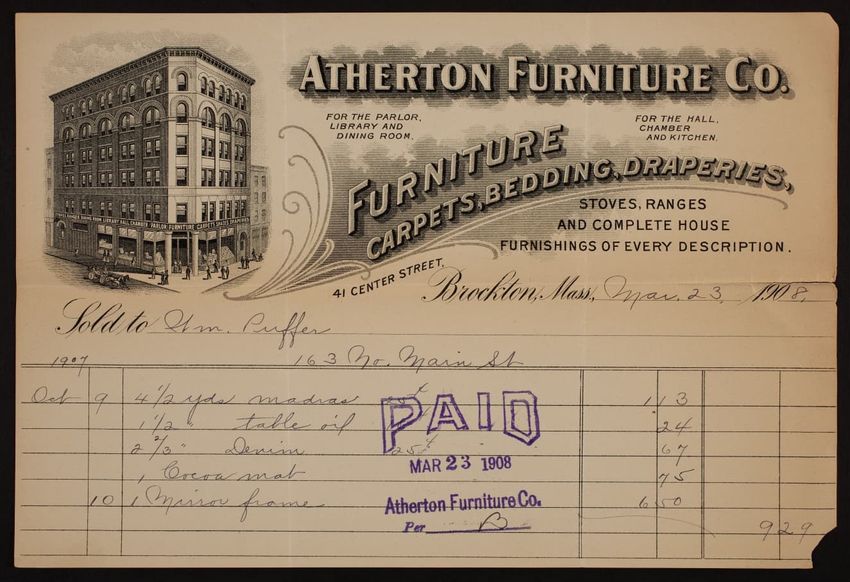 ATHERTON FURNITURE CO.
FOR THE PARLOR, LIBRARY AND DINING ROOM.
FOR THE HALL, CHAMBER AND KITCHEN.
FURNITURE
CARPETS, BEDDING, DRAPERIES,
STOVES, RANGES
AND COMPLETE HOUSE
FURNISHINGS OF EVERY DESCRIPTION.
41 CENTER STREET,
Brockton, Mass., Mar. 23, 1908.
Sold to Wm. Puffer
1907 163 No. Main St
Oct 9 4 1/2 yds madras 1 13
1 1/2 " table oil 24
2 2/3 " Denim 25¢ 67
1 Cocoa mat 75
10 1 Mirror frame 6 50
9 29
PAID
MAR 23 1908
Atherton Furniture Co.
Per B